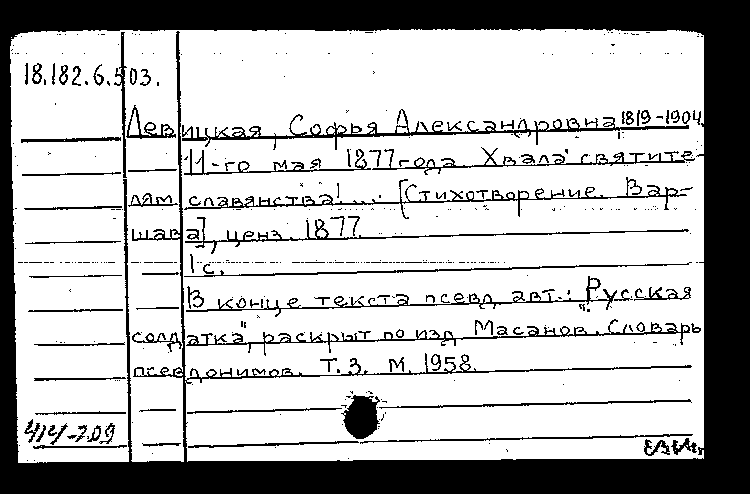 18.182.6.503.
Левицкая, Софья Александровна, 1819-1904.
11-го мая 1877 года. Хвала святите-
лям славянства!... [Стихотворение. Вар-
шава], ценз. 1877.
1 с.
В конце текста псевд. авт.: "Русская
солдатка", раскрыт по изд. Масанов. Словарь
псевдонимов. Т.3. М. 1958.
414-709